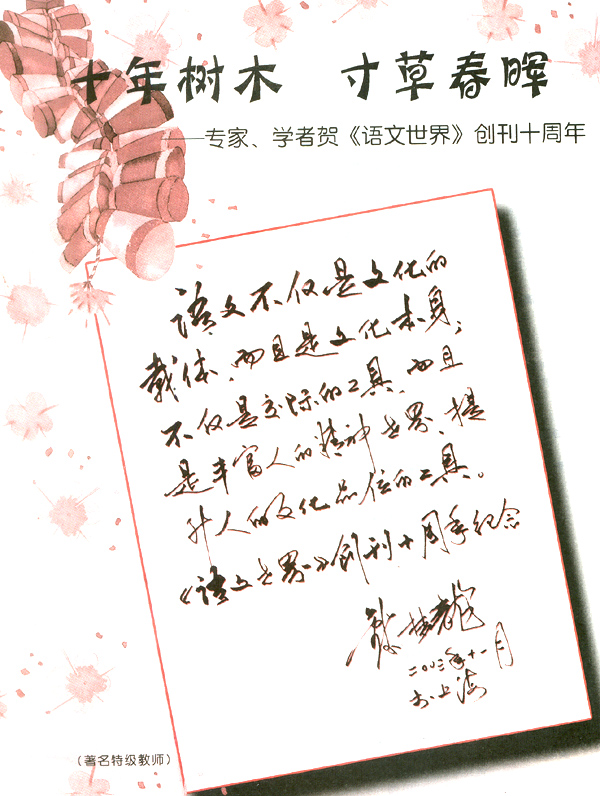 十年树木　寸草春晖
——专家、学者贺《语文世界》创刊十周年
语文不仅是文化的
载体，而且是文化本身，
不仅是交际的工具，而且
是丰富人的精神世界、提
升人的文化品位的工具。
《语文世界》创刊十周年纪念
二〇〇三年十一月
于上海
（著名特级教师）